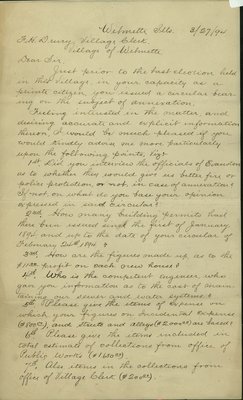 Wilmette Ills. 3/27/94
F. H. Drury, Village Clerk
Village of Wilmette
Dear Sir
Just prior to the last election held
in this village, in your capacity as a
private citizen, you issued a circular bear-
ing on the subject of annexation.
Feeling interested in the matter and
desiring accurate and explicit information
thereon, I would be much pleased if you
would kindly advise me more particularly
upon the following points, viz:
1st Did you interview the officials of Evanston
as to whether they would give us better fire or
police protection, or not, in case of annexation?
If not, on what do you base your opinion
expressed in said circular?
2nd How many building permits had
there been issued since the first of January
189 and up to the date of your circular of
February 24th 1894?
3rd How are the figures made up as to the
profit on each new house?
4th Who is the competent engineer who
gave you information as to the cost of main-
taining our sewer and water systems?
5th Please give the items of expense on
which your figures on Incidental expense
and streets and alleys ($2000.00) are based?
6th Please give the items included in
total estimate of collections from office of
Public Works
7th Also items in the collections from
office of Village Clerk